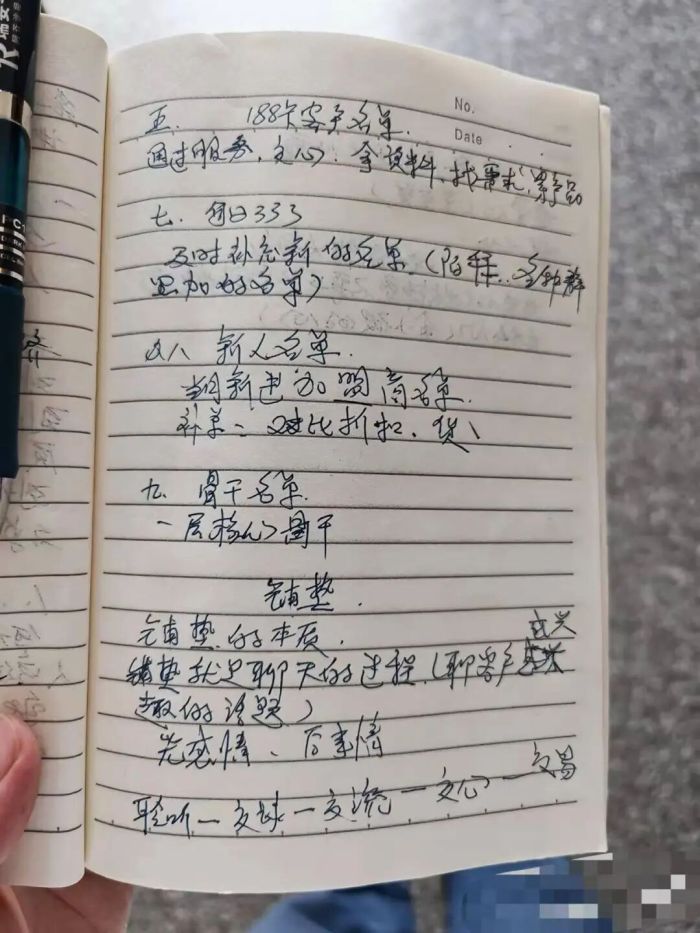 No.
Date
五. 188个客户名单.
通过服务,交心,拿资料,找需求,
七. 每日333
及时补充新的名单.(陌拜..各种群
里加的名单)
八 新人名单.
当月新进加盟商名单.
补单 对比折扣、货
九、骨干名单.
一层核心骨干
铺垫.
铺垫的本质.
铺垫就是聊天的过程.(聊客户感兴
趣的话题)
先感情、后事情
聆听一交球一交流一交心一交易